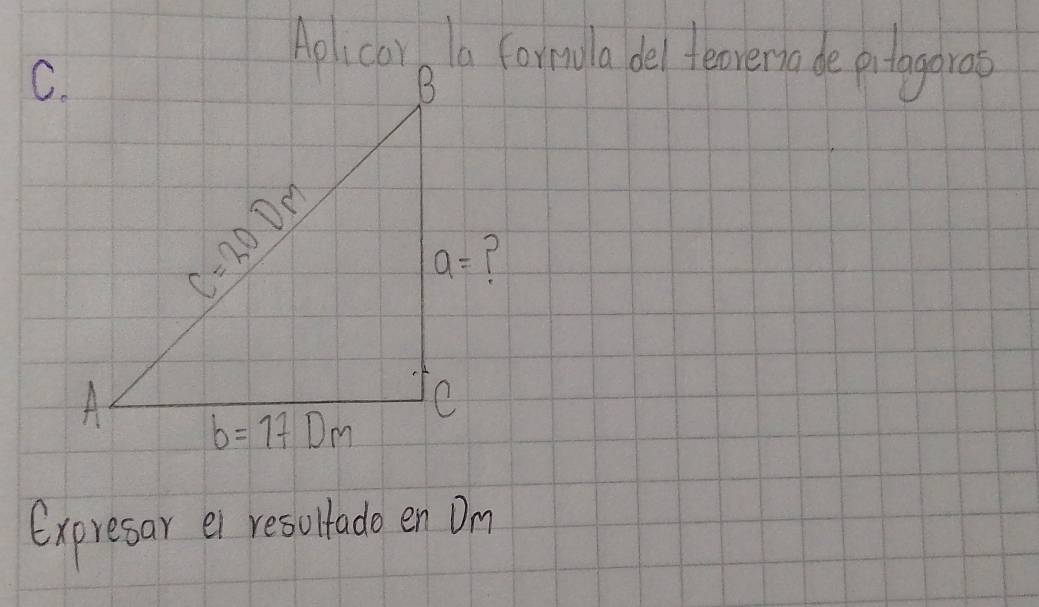 Aplicar la formula del teorema de pitagoras
C.
B
C=20 Dm
a=?
A
C
b=17 Dm
Expresar el resultado en Dm